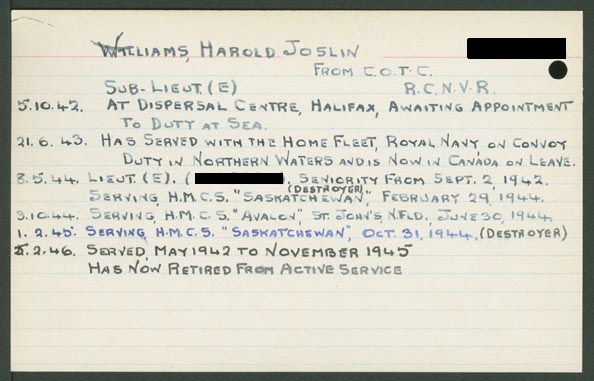 Williams, Harold Joslin
From C.O.T.C.
Sub-Lieut. (E) R.C.N.V.R.
5.10.42. At Dispersal Centre, Halifax, Awaiting Appointment
To Duty at Sea.
21.6.43. Has Served with the Home Fleet, Royal Navy on Convoy
Duty in Northern Waters and is Now in Canada on Leave.
8.5.44. Lieut. (E). ( ), Seniority From Sept. 2, 1942.
(Destroyer)
Serving, H.M.C.S. "Saskatchewan", February 29, 1944.
3.10.44. Serving, H.M.C.S. "Avalon", St. John's. Nfld., June 30, 1944.
1.2.45. Serving, H.M.C.S. "Saskatchewan", Oct. 31, 1944. (Destroyer)
5.2.46. Served, May 1942 to November 1945
Has Now Retired From Active Service